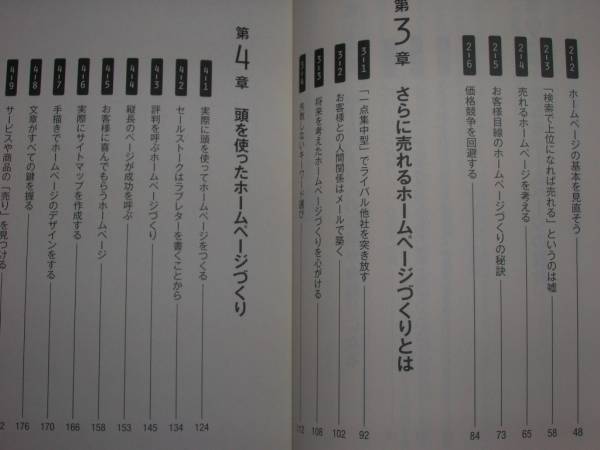 2-2 ホームページの基本を見直そう 48
2-3 「検索で上位になれば売れる」というのは嘘 58
2-4 売れるホームページを考える 65
2-5 お客様目線のホームページづくりの秘訣 73
2-6 価格競争を回避する 84
第3章 さらに売れるホームページづくりとは
3-1 「一点集中型」でライバル他社を突き放す 92
3-2 お客様との人間関係はメールで築く 102
3-3 将来を考えたホームページづくりを心がける 108
3-4 失敗しないキーワード選び 112
第4章 頭を使ったホームページづくり
4-1 実際に頭を使ってホームページをつくる 124
4-2 セールストークはラブレターを書くことから 134
4-3 評判を呼ぶホームページづくり 145
4-4 縦長のページが成功を呼ぶ 153
4-5 お客様に喜んでもらうホームページ 158
4-6 実際にサイトマップを作成する 166
4-7 手描きでホームページのデザインをする 170
4-8 文章がすべての鍵を握る 176
4-9 サービスや商品の「売り」を見つける